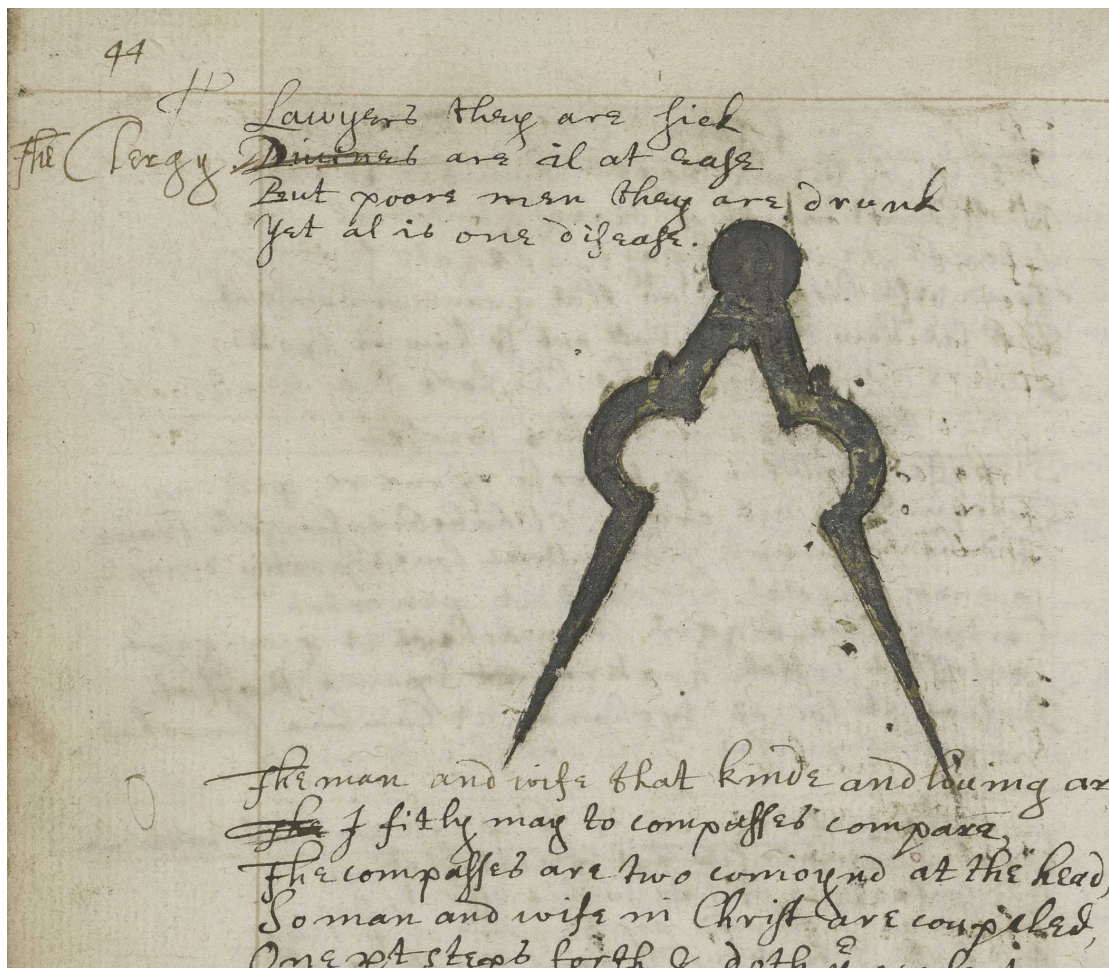 44
Lawyers they are sick
The Clergy Divines are il at ease
But poore men they are drunk
Yet al is one disease.
The man and wife that kinde and louing ar
The I fitly may to compasses compare,
The compasses are two conioynd at the head,
So man and wife in Christ are coupeled,
One pt steps forth & doth